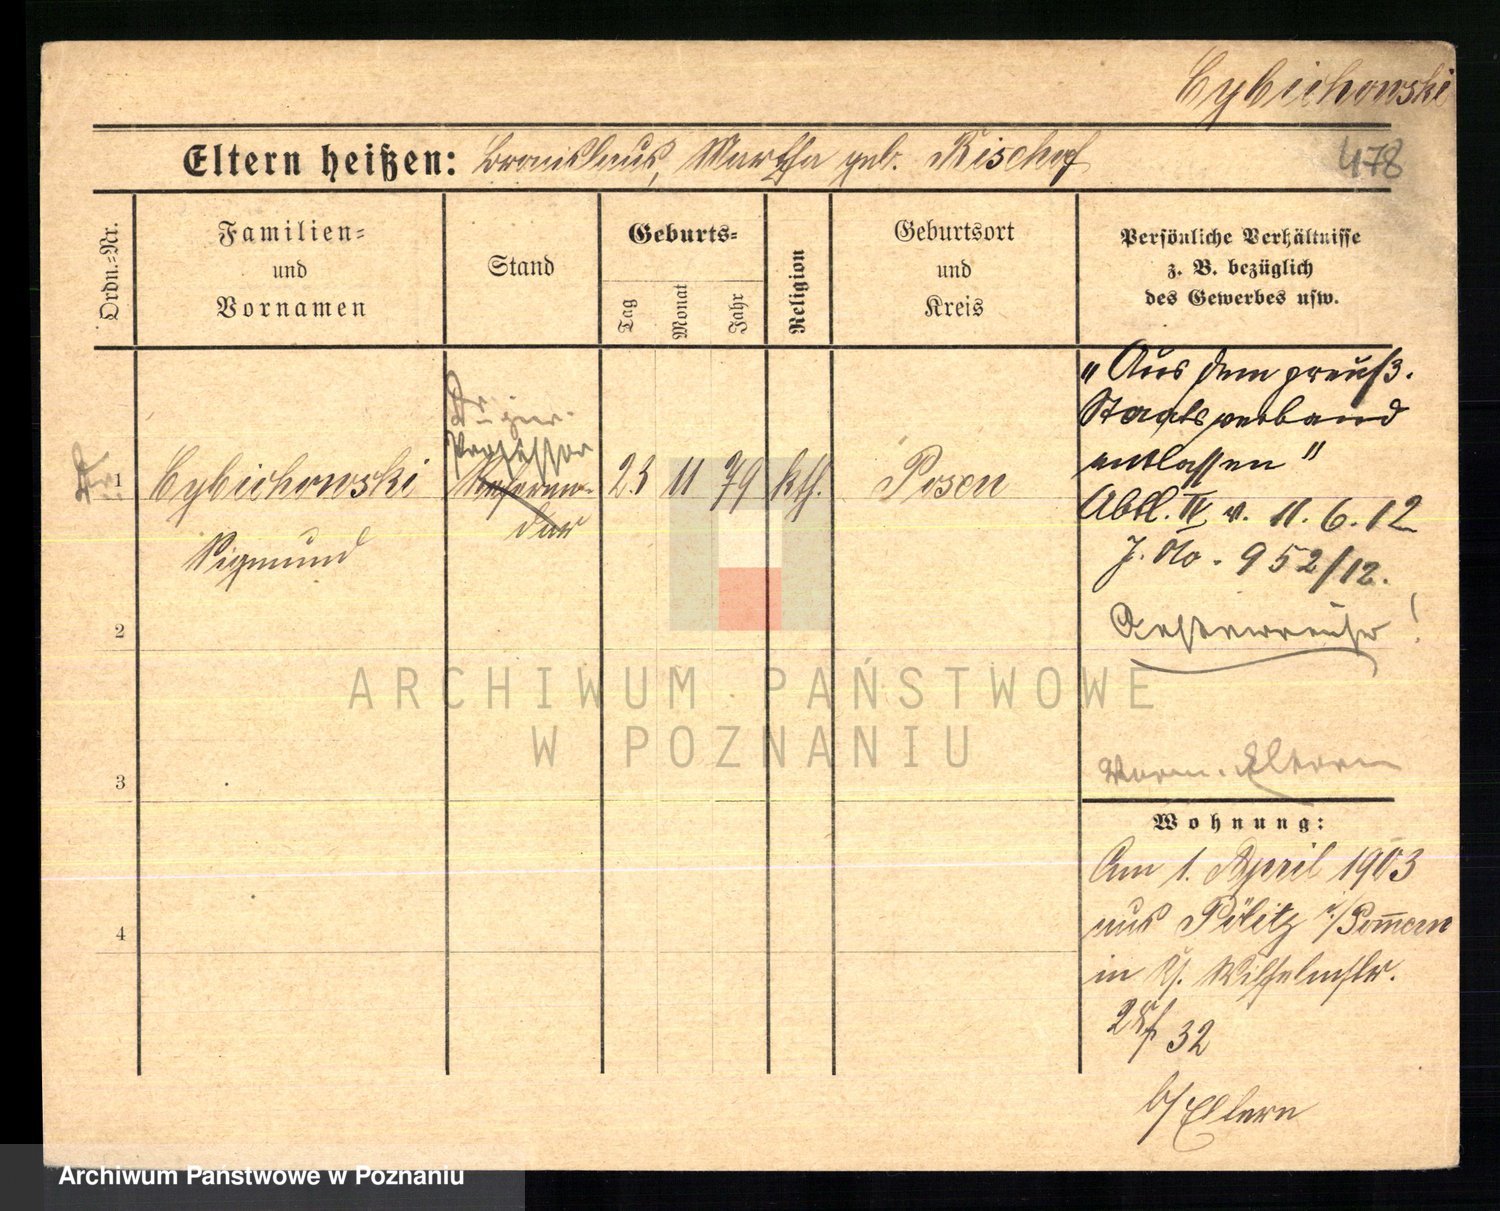 Cybichowski
478
Eltern heißen: Bronislaus, Martha geb. Bischof
Ordn.-Nr.
Familien-
und
Vornamen
Stand
Geburts-
Tag
Monat
Jahr
Religion
Geburtsort
und
Kreis
Persönliche Verhältnisse
z. B. bezüglich
des Gewerbes usw.
Dr. 1
Cybichowski
Sigmund
Dr. jur.
Professor
Referen-
dar
23 11 79 kth.
Posen
"Aus dem preuß.
Staatsverband
entlassen"
Abtl. IV v. 11. 6. 12
J. No. 952/12.
Oesterreicher!
2
3
4
Eltern
Wohnung:
Am 1. April 1903
aus Pölitz i/Pommern
in Wilhelmstr.
32
b/Eltern
ARCHIWUM PAŃSTWOWE
W POZNANIU
Archiwum Państwowe w Poznaniu